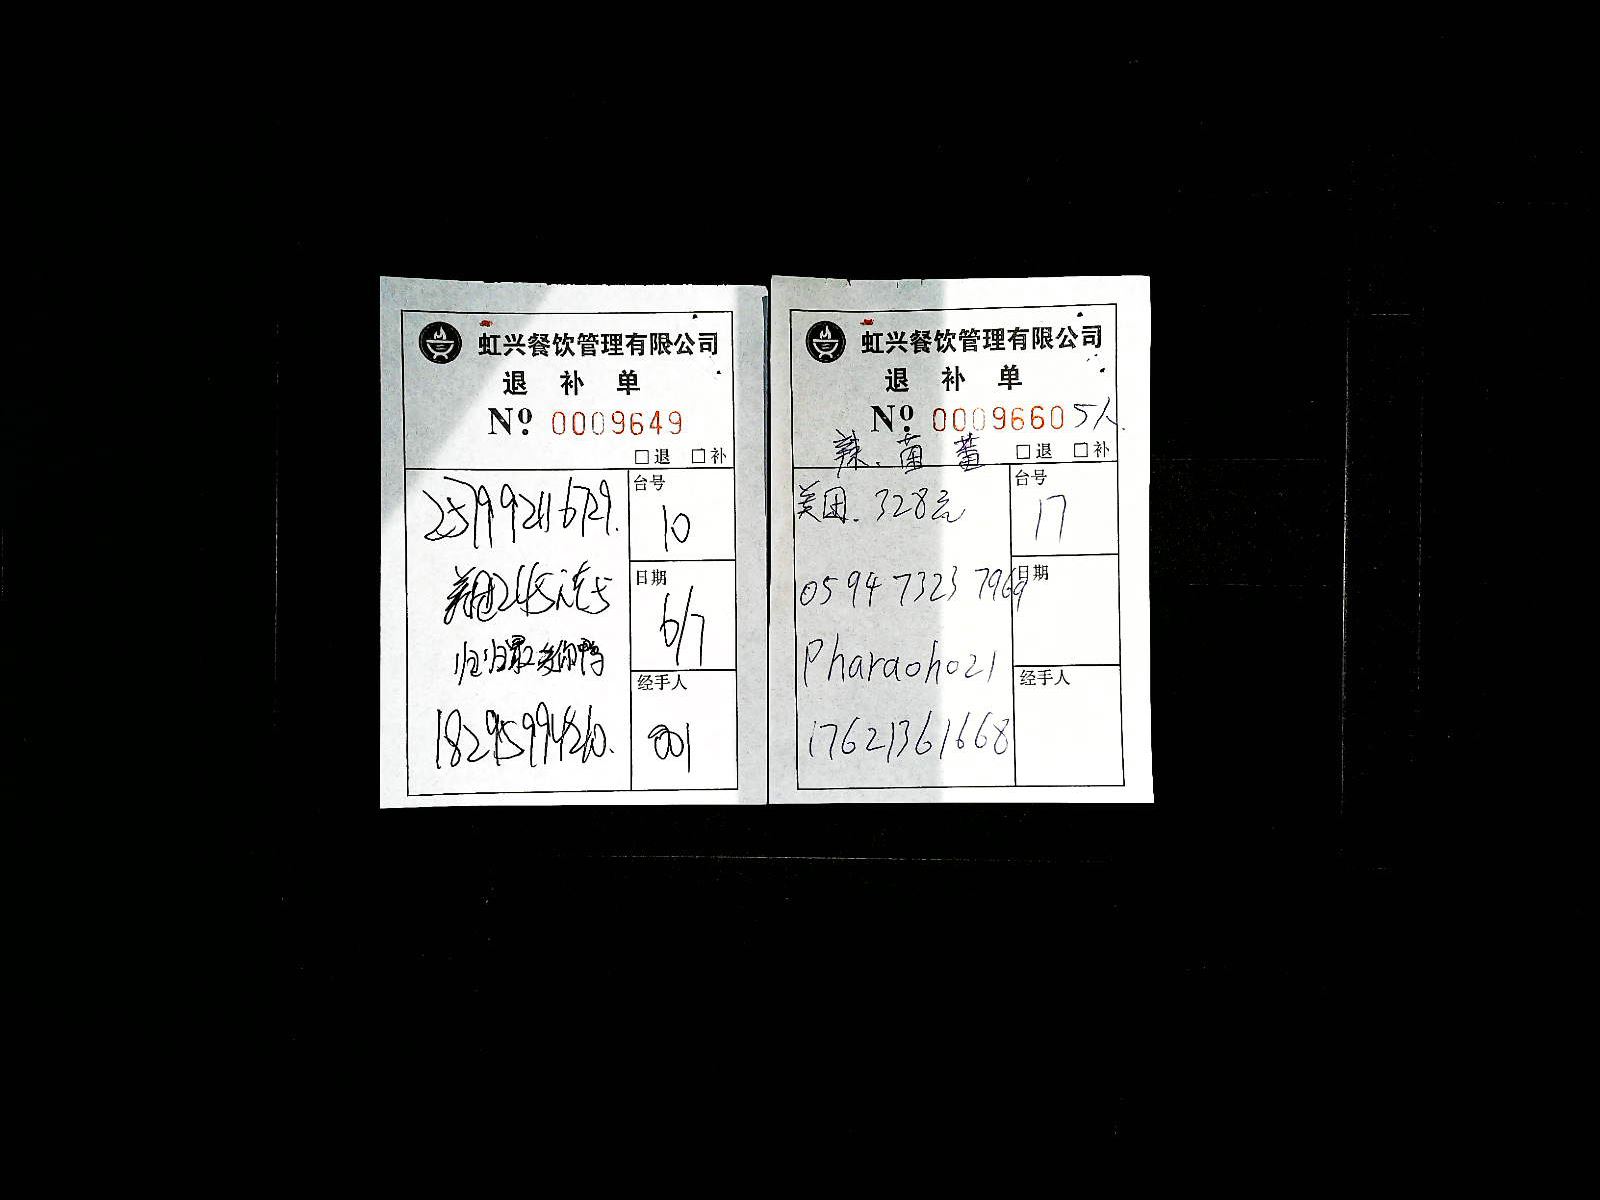 虹兴餐饮管理有限公司
退 补 单
Nº 0009649
□退 □补
台号
10
美团245元
日期
6/7
归归最爱你鸭
经手人
18295994260.
001
虹兴餐饮管理有限公司
退 补 单
Nº 0009660 5人.
辣. 菌 蕃
□退 □补
美团. 328元
台号
17
0594 7323 7969
日期
Pharaoh021
经手人
17621361668